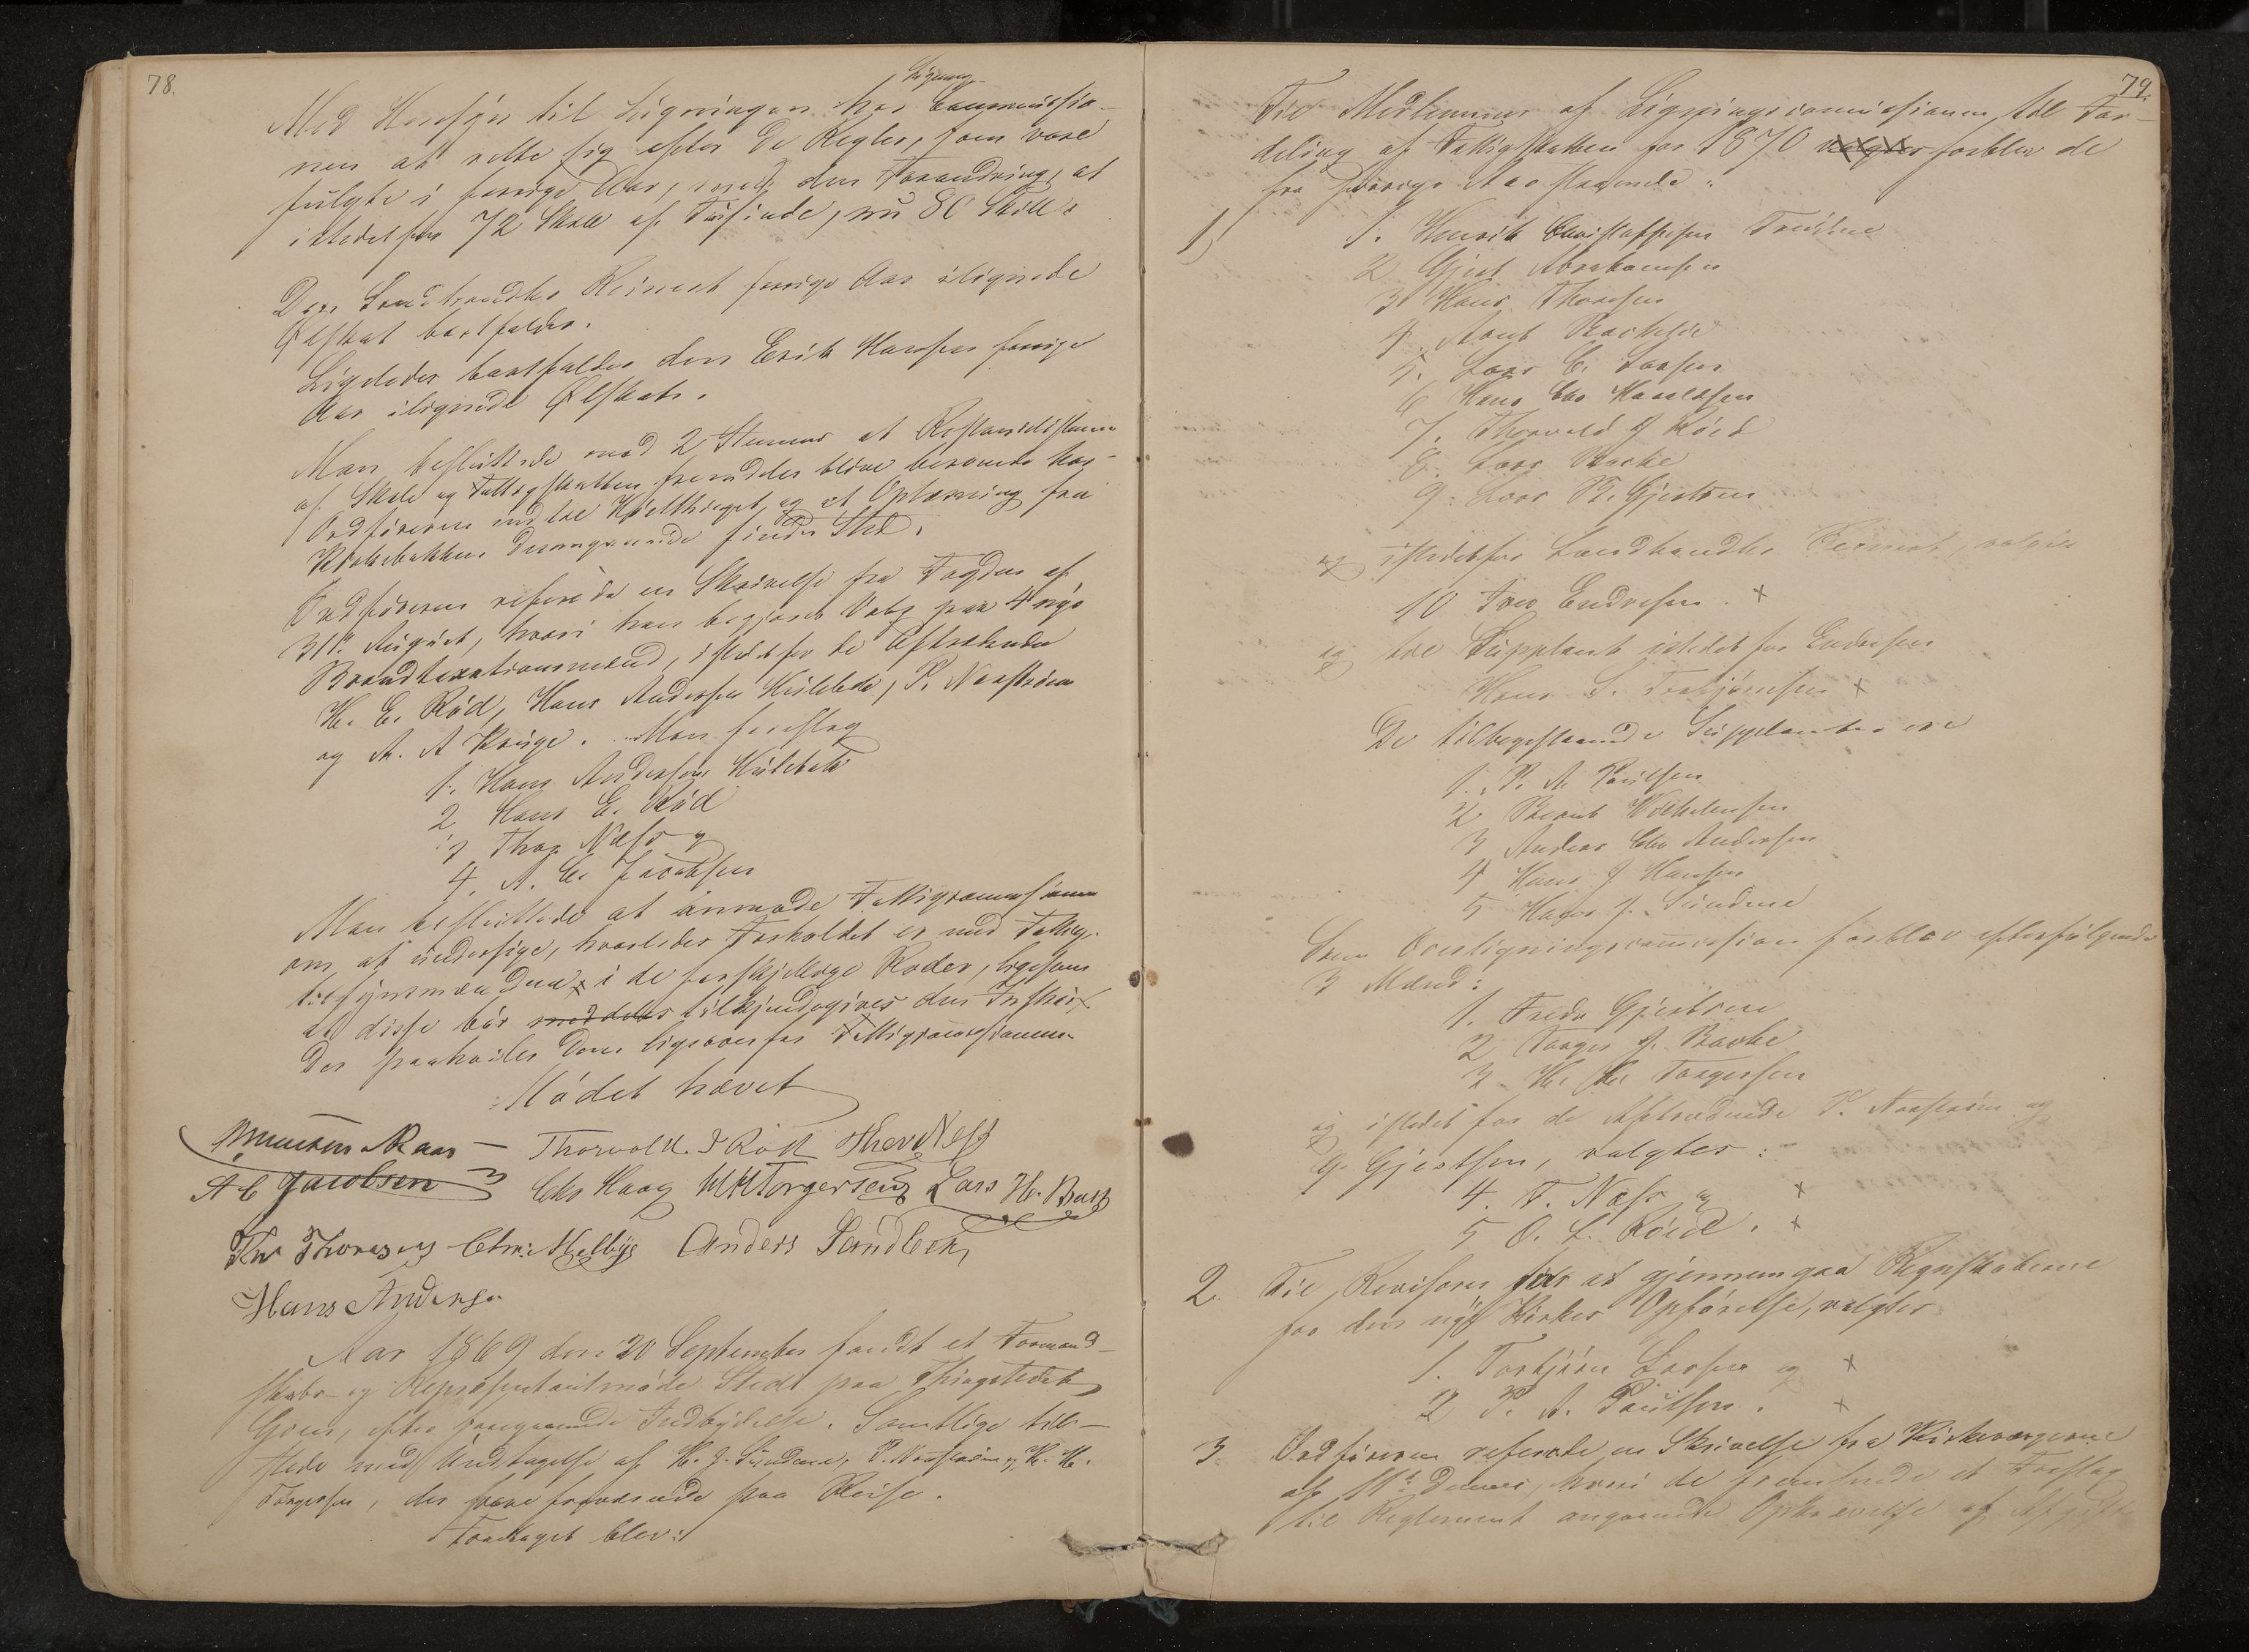 78.
Ligning-
Med Hensyn til Ligningen har Commissio-
nen at rette sig efter de Regler, som vare
fulgte i forrige Aar, med den Forandring, at
istedetfor 72 Skill af Tusinde, nu 80 Skill:
Den Landhandler Reinert forrige Aar ilignede
Ølskat bortfalder.
Ligeledes bortfalder den Erik Hansen forrige
Aar ilignede Ølskat.
Man besluttede mod 2 Stemmer at Restancelisterne
af Skole og Fattigskatten fremdeles blive beroende hos
Ordføreren indtil Høstthinget, og at Oplæsning fra
Kirkebakken desangaaende finder Sted.
Ordføreren refererede en Skrivelse fra Fogden af
31te August, hvori han begjærer Valg paa 4 nye
Brandtaxationsmænd, istedetfor de Aftrædende
H. E. Röd, Hans Andersen Hulebak, P. Narström
og A. A Krüge. Man foreslog
1. Hans Andersen Hulebak
2 Hans E. Röd
3 Thor Næss og
4. A. C. Jacobsen
Man besluttede at anmode Fattigcommissionen
om at undersøge, hvorledes Forholdet er med Fattig-
tilsynsmændene i de forskjellige Roder, ligesom
at disse bör meddeles tilkjendegives den Instrux
der paahviler dem ligeoverfor Fattigcommissionen.
Mödet hævet
Maas - Thorvold. J Röd Thor Næss
A C Jacobsen Chr Haag H H Torgersen Lars H. Bache
Thoresen Chr: Melbye Anders Sundbek
Hans Andersen
Aar 1869 den 20 September holdt et Formand-
skabs- og Repræsentantmöde Sted paa Thingstedet
Grini, efter foregaaende Indbydelse. Samtlige til-
stede med Undtagelse af H. J. Sundene, P. Narström og H. H.
Torgersen, der vare fraværende paa Reise.
Foretaget blev:
79.
Til Medlemmer af Ligningscommissionen til For-
deling af Fattigskatten for 1870 valgtes forblev de
fra forrige Aar staaende:
1) 1. Henrik Christoffersen Truilene
2 Gjert Abrahamsen
3 Hans Thoresen
4. Arnt Bachelie
5. Lars C. Larsen
6 Hans Chr Haraldsen
7. Thorvald J Röed
8. Lars Bache
9. Lars B. Gjertsen
og istedetfor Landhandler Reinert, valgtes
10 Iver Endresen. x
og til Supplant istedet for Endresen
Hans S. Torbjörnsen x
De tilbagestaaende Supplanter ere
1. P. A. Paulsen
2 Bernt Wilhelmsen
3 Anders Chr Andersen
4 Hans J Hansen
5 Hans J. Sundene
Som Overligningscommission forblev efterfölgende
3 Mænd:
1. Fredr Gjertsen
2 Torger J. Bache
3 H. H. Torgersen
og istedet for de Aftrædende P. Narström og
G. Gjertsen, valgtes:
4. T. Næss og x
5 O. L. Röed. x
2. Til Revisorer for at gjennemgaa Regnskaberne
for den nye Kirkes Opförelse, valgtes
1. Torbjörn Larsen og x
2 P. A. Paulsen. x
3. Ordföreren refererte en Skrivelse fra Kirkeværgerne
af 11te Dennes, hvori de fremsende et Forslag
til Reglement angaaende Opkrævelse af Afgift